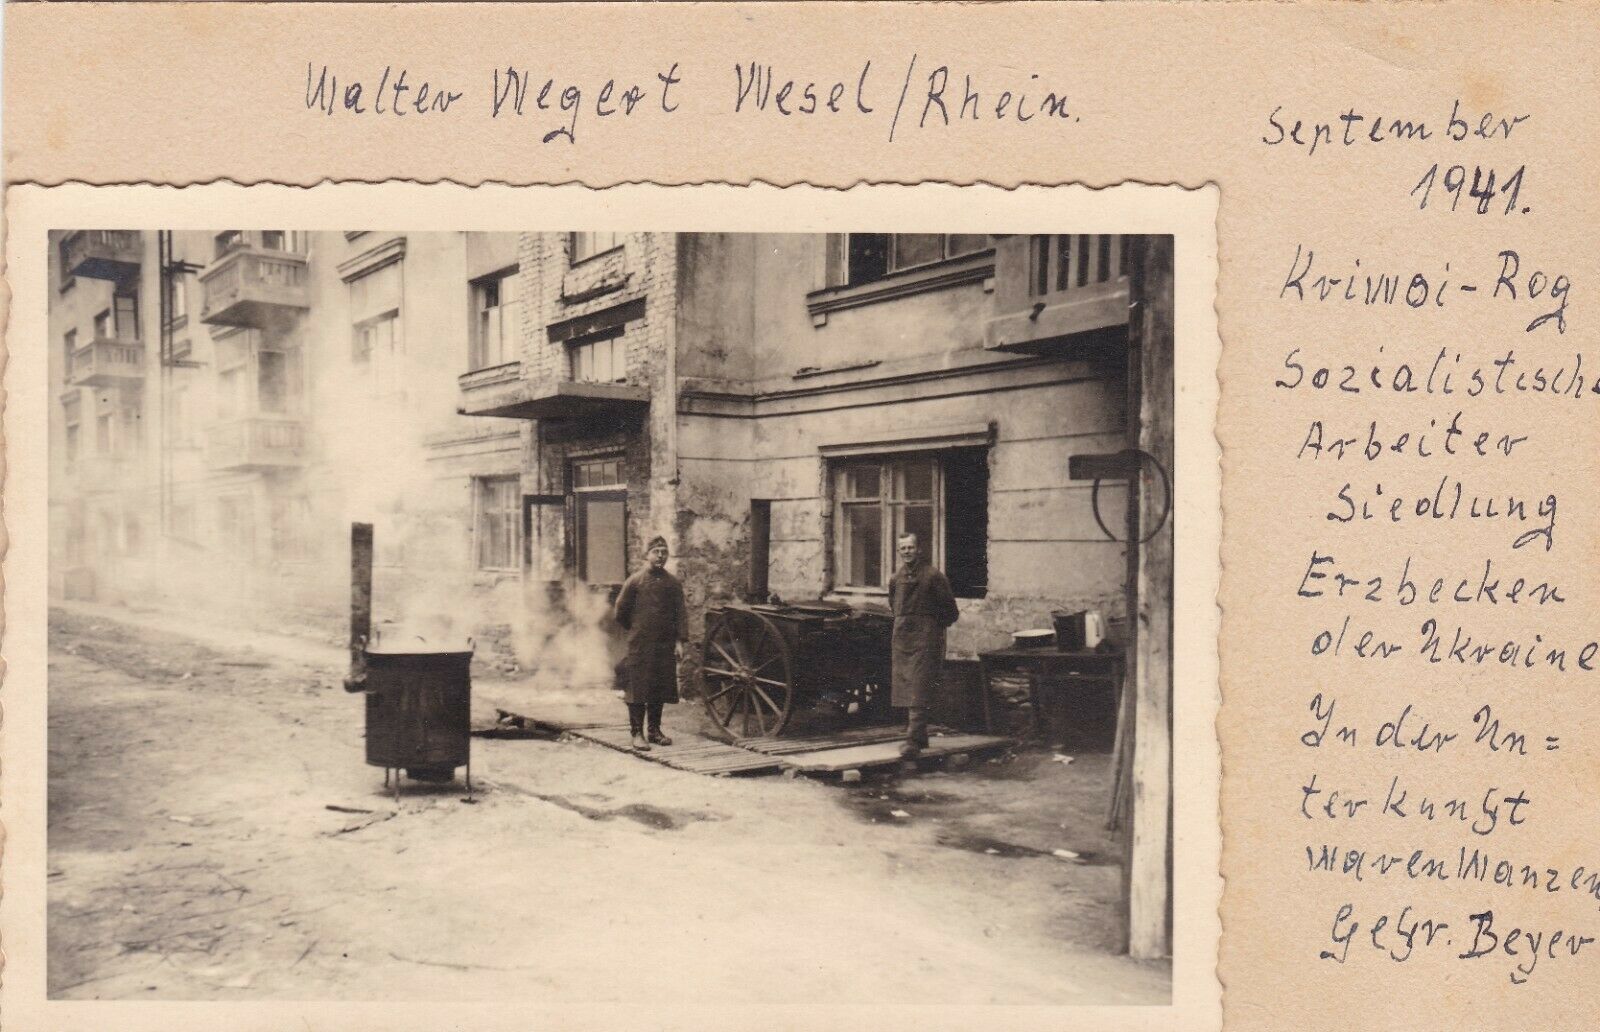 Walter Wegert Wesel/Rhein.
September
1941.
Kriwoi-Rog
Sozialistische
Arbeiter
Siedlung
Erzbecken
der Ukraine
In der Un=
terkunft
waren Wanzen,
Gefr. Beyer